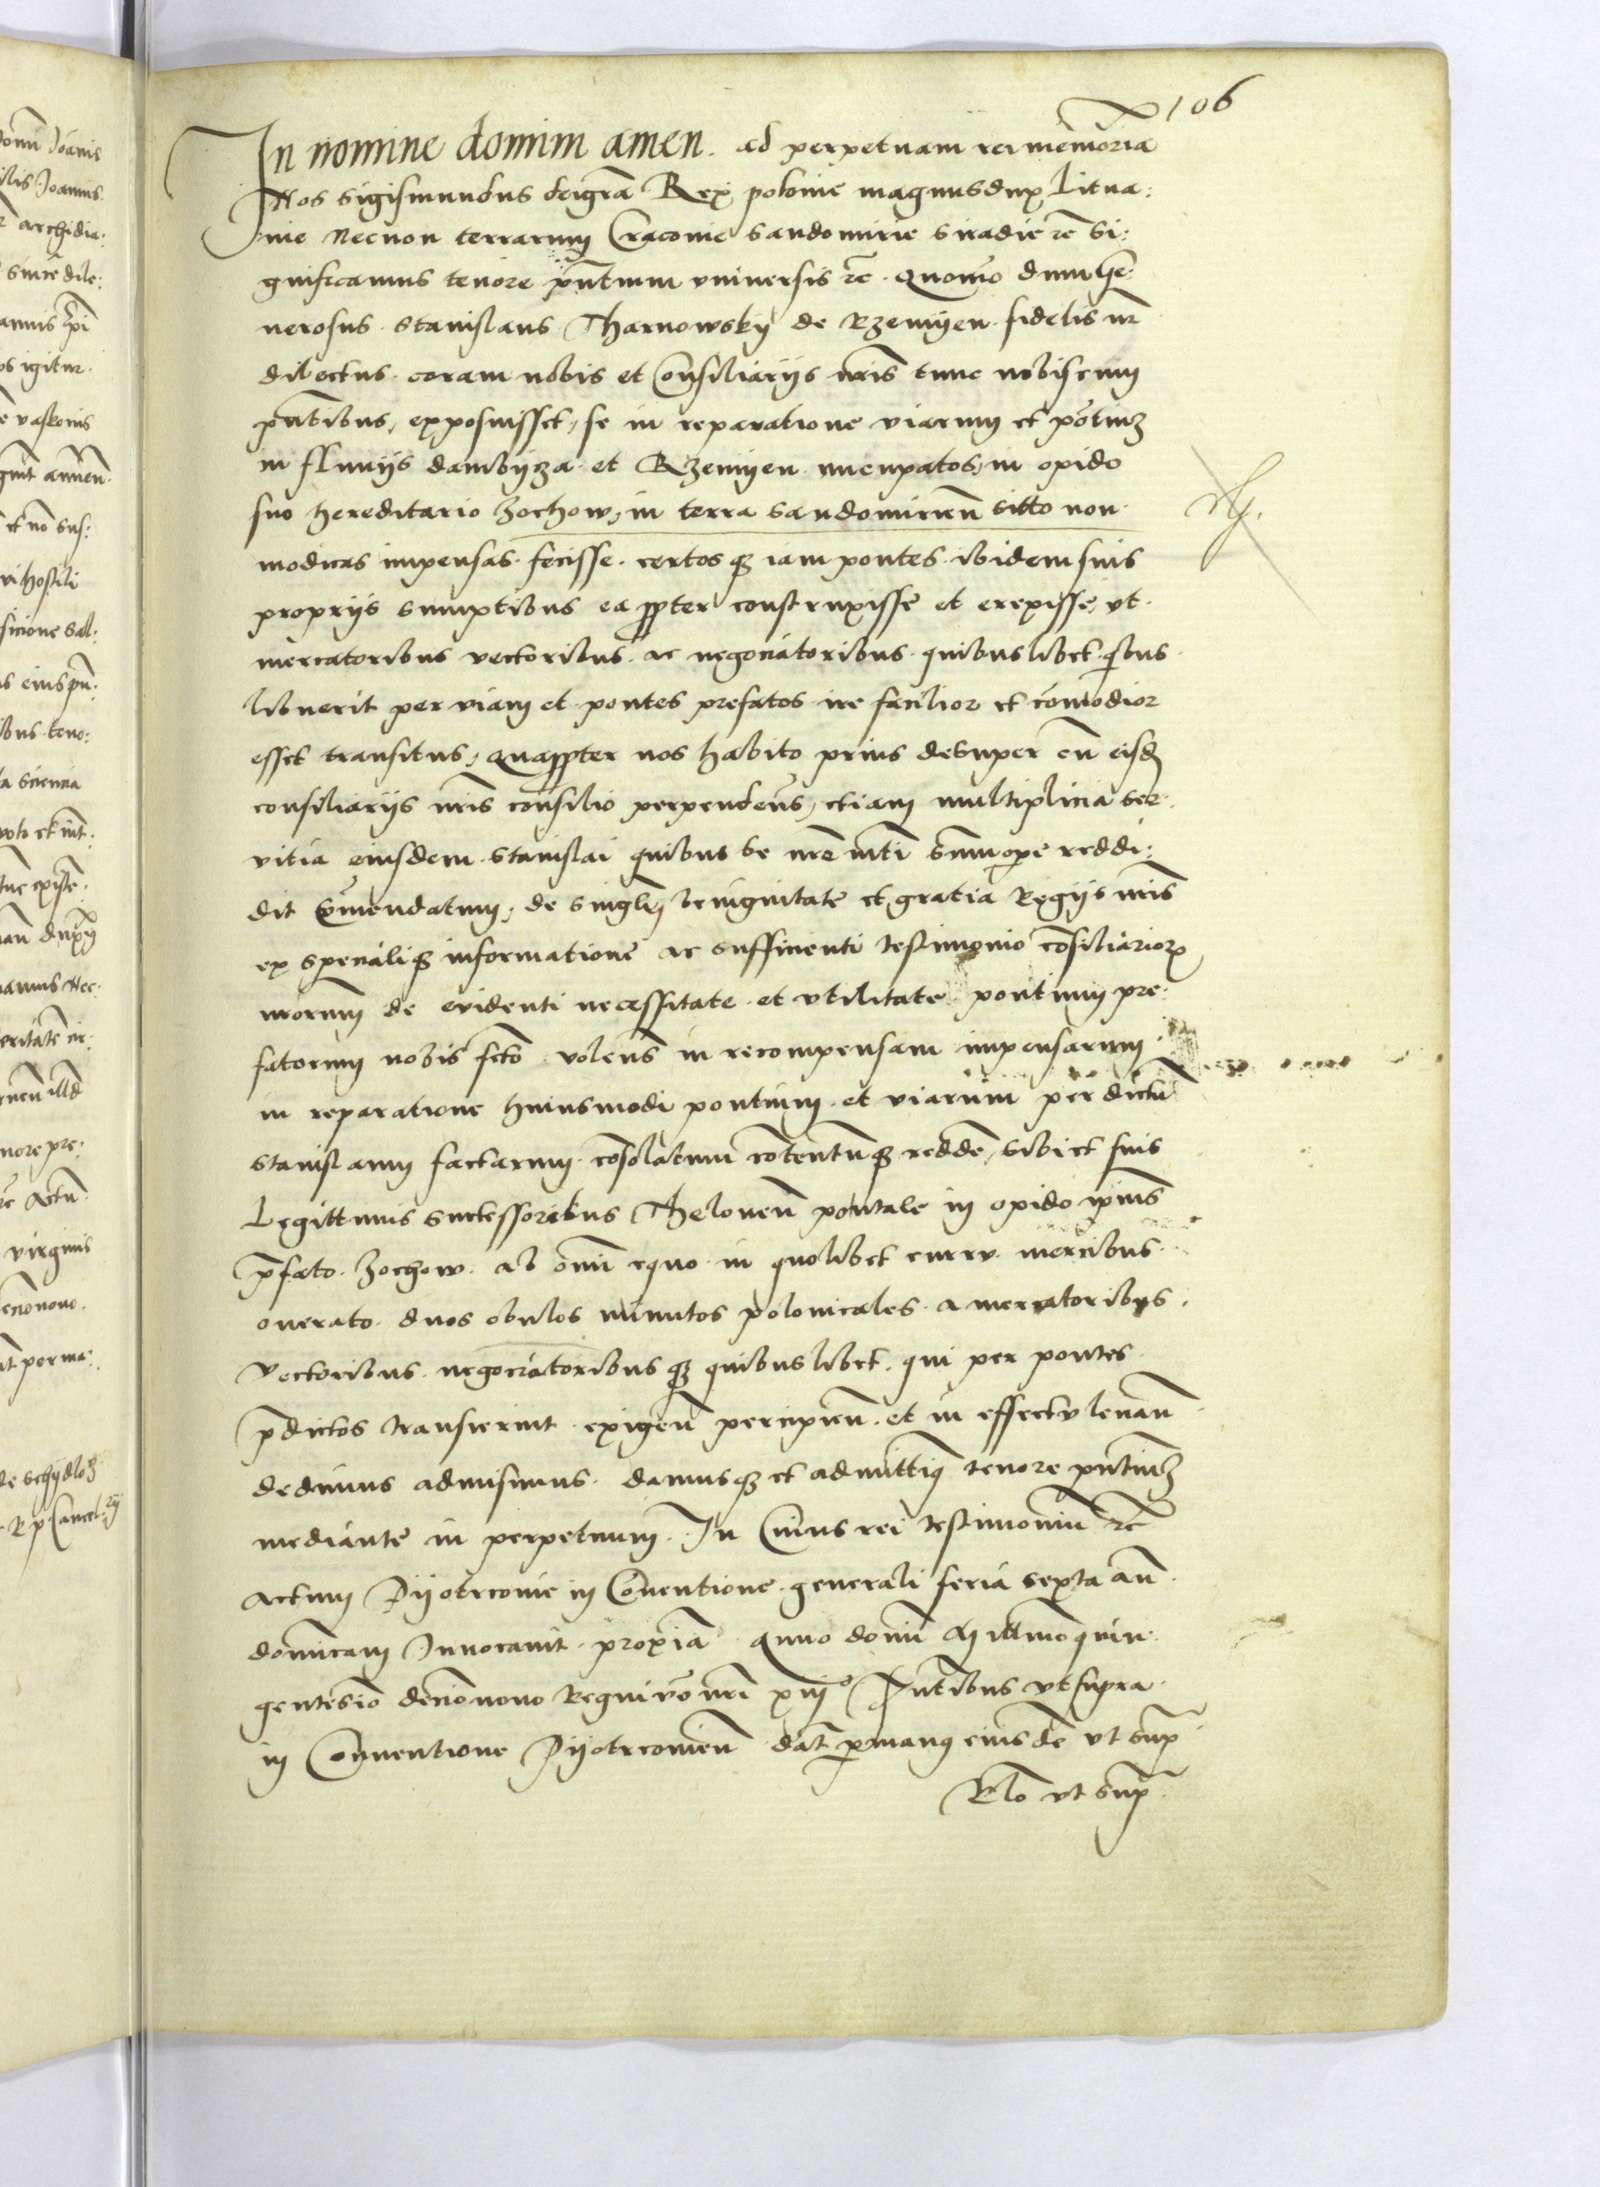 106
In nomine domini amen. ad perpetuam rei memoria
Nos Sigismundus dei gra Rex polonie magnus dux Litua:
nie Necnon terrarum Cracovie Sandomirie Siradie etc Si:
gnificamus tenore pntium universis etc. Quomo dum Ge
nerosus Stanislaus Tharnowsky de Rzemyen fidelis nr
dilectus coram nobis et Consiliariis nris tunc nobiscum
pntibus, exposuisset, se in reparatione viarum et pontium
in fluviis dambycza et Rzemyen nuncupatos, in opido
suo hereditario Zochow, in terra Sandomirien sitto non
modicas impensas fecisse. certosque iam pontes ibidem suis
propriis sumptibus ea ppter construxisse et erexisse, ut
mercatoribus vectoribus ac negociatoribus quibuslibet qbus
libuerit per viam et pontes prefatos ire facilior et comodior
esset transitus, Quappter nos habito prius desuper cu eisd
consiliariis nris consilio perpendens, etiam multiplicia ser:
vitia eiusdem Stanislai quibus se nre mti summope reddi:
dit comendatum, de singlri benignitate et gratia Regiis nris
ex specialique informatione ac sufficienti testimonio consiliarior
nrorum de evidenti necessitate et utilitate pontium pre:
fatorum nobis fcto volens in recompensam impensarum
in reparatione huiusmodi pontium et viarum per dictu
Stanislaum factarum consolatum contentumque redde, sibi et suis
Legittimis successoribus Theloneu pontale in opido ipius
pfato Zochow ab omi equo in quolibet curru mercibus
onerato duos obulos minutos polonicales a mercatoribus
Vectoribus negociatoribusque quibuslibet qui per pontes
pdictos transierint exigen percipien et in effectu levan
dedimus admisimus damusque et admittimus tenore pntium
mediante in perpetuum. In Cuius rei testimonium etc
Actum Pyotrcovie in Conventione generali feria sexta an
dominicam Invocavit proxia Anno domi Millmo quin
gentesio decionono Regni vo nri xiii° Pntibus ut supra
in Conventione Pyotrcovien dat p manus eiusde ut sup
Rlo ut sup